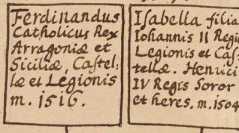 Ferdinandus
Catholicus Rex
Arragoniæ et
Siciliæ, Castel:
læ et Legionis
m. 1516.
Isabella filia
Iohannis II Regis
Legionis et Cas-
tellæ. Henrici
IV Regis Soror
et heres. m. 1504